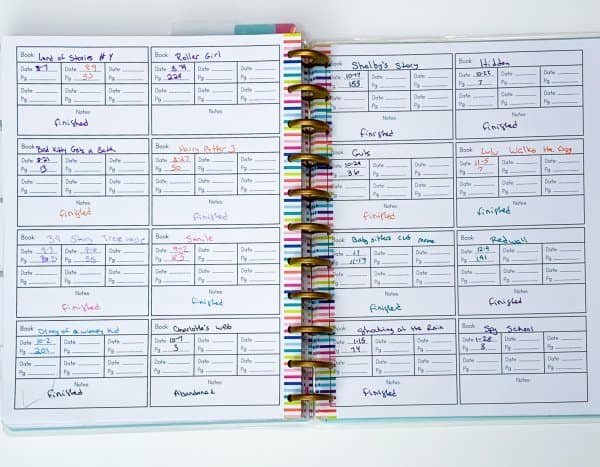 Book Land of Stories #4
Date 8-7 Date 8-9 Date
Pg Pg 52 Pg
Date Date Date
Pg Pg Pg
Notes
finished
Book Bad Kitty Gets a Bath
Date 8-21 Date Date
Pg 3 Pg Pg
Date Date Date
Pg Pg Pg
Notes
finished
Book 39 Story Treehouse
Date 9-3 Date Date
Pg Pg 55 Pg
Date Date Date
Pg Pg Pg
Notes
finished
Book Diary of a Wimpy Kid
Date 10-2 Date Date
Pg 201 Pg Pg
Date Date Date
Pg Pg Pg
Notes
finished
Book Roller Girl
Date Date Date
Pg 224 Pg Pg
Date Date Date
Pg Pg Pg
Notes
Book Harry Potter 3
Date 8-27 Date Date
Pg 50 Pg Pg
Date Date Date
Pg Pg Pg
Notes
finished
Book Smile
Date Date Date
Pg 53 Pg Pg
Date Date Date
Pg Pg Pg
Notes
finished
Book Charlotte's Web
Date 10-7 Date Date
Pg 3 Pg Pg
Date Date Date
Pg Pg Pg
Notes
Abandoned
Book Shelby's Story
Date 10-17 Date Date
Pg 153 Pg Pg
Date Date Date
Pg Pg Pg
Notes
finished
Book Guts
Date 10-29 Date Date
Pg 36 Pg Pg
Date Date Date
Pg Pg Pg
Notes
finished
Book Baby sitters club
Date Date Date
Pg Pg Pg
Date Date Date
Pg Pg Pg
Notes
finished
Book at the Rain
Date 1-15 Date Date
Pg 74 Pg Pg
Date Date Date
Pg Pg Pg
Notes
finished
Book Hidden
Date 10-22 Date Date
Pg 7 Pg Pg
Date Date Date
Pg Pg Pg
Notes
finished
Book Lulu Walks the Dog
Date 11-5 Date Date
Pg 7 Pg Pg
Date Date Date
Pg Pg Pg
Notes
finished
Book Redwall
Date 12-9 Date Date
Pg 141 Pg Pg
Date Date Date
Pg Pg Pg
Notes
finished
Book Spy School
Date 1-28 Date Date
Pg 3 Pg Pg
Date Date Date
Pg Pg Pg
Notes